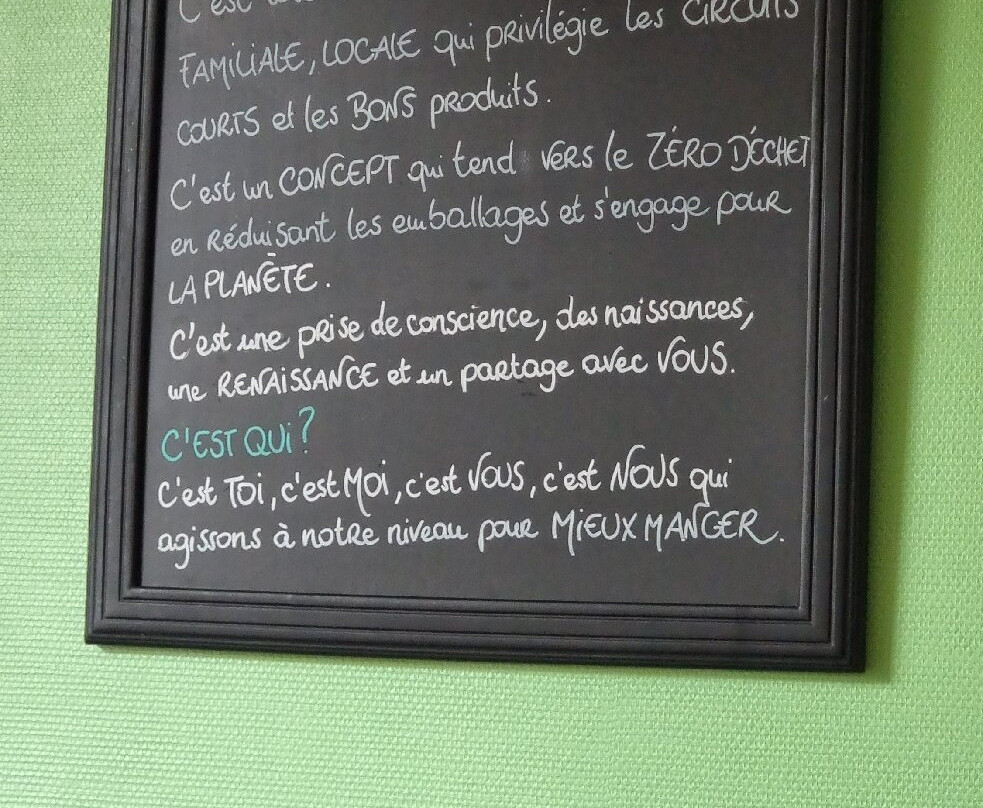 C'est
FAMILIALE, LOCALE qui privilégie les CIRCUITS
COURTS et les BONS produits.
C'est un CONCEPT qui tend vers le ZÉRO DÉCHET
en Réduisant les emballages et s'engage pour
LA PLANÈTE.
C'est une prise de conscience, des naissances,
une RENAISSANCE et un partage avec VOUS.
C'EST QUI?
C'est Toi, c'est Moi, c'est VOUS, c'est NOUS qui
agissons à notre niveau pour MIEUX MANGER.